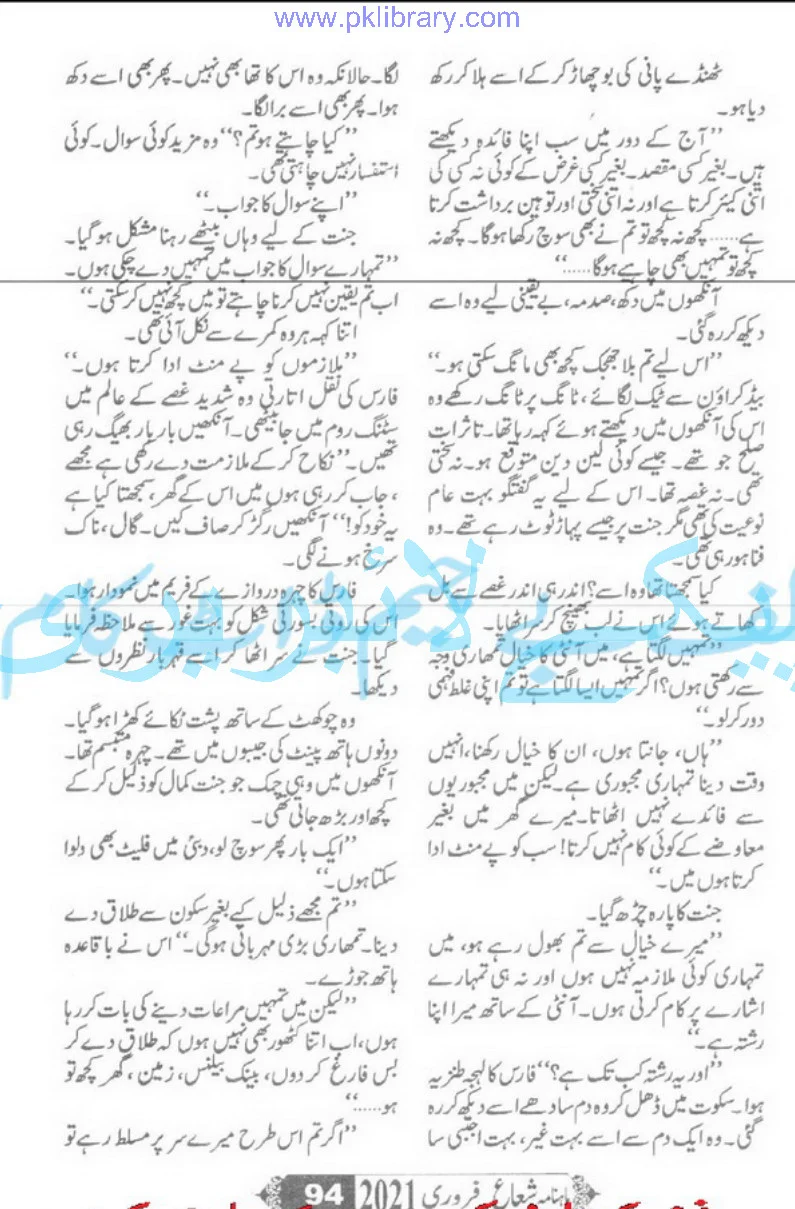 www.pklibrary.com
ٹھنڈے پانی کی بوچھاڑ کرکے اسے ہلا کر رکھ
دیا ہو۔
’’آج کے دور میں سب اپنا فائدہ دیکھتے
ہیں۔ بغیر کسی مقصد۔ بغیر کسی غرض کے کوئی نہ کسی کی
اتنی کیئر کرتا ہے اور نہ اتنی سختی اور توہین برداشت کرتا
ہے...... کچھ نہ کچھ تو تم نے بھی سوچ رکھا ہوگا۔ کچھ نہ
کچھ تو تمہیں بھی چاہیے ہوگا......‘‘
آنکھوں میں دکھ، صدمہ، بے یقینی لیے وہ اسے
دیکھ کر رہ گئی۔
’’اس لیے تم بلا جھجک کچھ بھی مانگ سکتی ہو۔‘‘
بیڈ کراؤن سے ٹیک لگائے، ٹانگ پر ٹانگ رکھے وہ
اس کی آنکھوں میں دیکھتے ہوئے کہہ رہا تھا۔ تاثرات
صلح جو تھے۔ جیسے کوئی لین دین متوقع ہو۔ نہ سختی
تھی۔ نہ غصہ تھا۔ اس کے لیے یہ گفتگو بہت عام
نوعیت کی تھی مگر جنت پر جیسے پہاڑ ٹوٹ رہے تھے۔ وہ
فنا ہو رہی تھی۔
کیا سمجھتا تھا وہ اسے؟ اندر ہی اندر غصے سے بل
کھاتے ہوئے اس نے لب بھینچ کر سر اٹھایا۔
’’تمہیں لگتا ہے، میں آنٹی کا خیال تمھاری وجہ
سے رکھتی ہوں؟ اگر تمہیں ایسا لگتا ہے تو تم اپنی غلط فہمی
دور کر لو۔‘‘
’’ہاں، جانتا ہوں، ان کا خیال رکھنا، انہیں
وقت دینا تمہاری مجبوری ہے۔ لیکن میں مجبوریوں
سے فائدے نہیں اٹھاتا۔ میرے گھر میں بغیر
معاوضے کے کوئی کام نہیں کرتا! سب کو پے منٹ ادا
کرتا ہوں میں۔‘‘
جنت کا پارہ چڑھ گیا۔
’’میرے خیال سے تم بھول رہے ہو، میں
تمہاری کوئی ملازمہ نہیں ہوں اور نہ ہی تمہارے
اشارے پر کام کرتی ہوں۔ آنٹی کے ساتھ میرا اپنا
رشتہ ہے۔‘‘
’’اور یہ رشتہ کب تک ہے؟‘‘ فارس کا لہجہ طنزیہ
ہوا۔ سکوت میں ڈھل کر وہ دم سادھے اسے دیکھ کر رہ
گئی۔ وہ ایک دم سے اسے بہت غیر، بہت اجنبی سا
لگا۔ حالانکہ وہ اس کا تھا بھی نہیں۔ پھر بھی اسے دکھ
ہوا۔ پھر بھی اسے برا لگا۔
’’کیا چاہتے ہو تم؟‘‘ وہ مزید کوئی سوال۔ کوئی
استفسار نہیں چاہتی تھی۔
’’اپنے سوال کا جواب۔‘‘
جنت کے لیے وہاں بیٹھے رہنا مشکل ہو گیا۔
’’تمہارے سوال کا جواب میں تمہیں دے چکی ہوں۔
اب تم یقین نہیں کرنا چاہتے تو میں کچھ نہیں کر سکتی۔‘‘
اتنا کہہ ہر وہ کمرے سے نکل آئی تھی۔
’’ملازموں کو پے منٹ ادا کرتا ہوں۔‘‘
فارس کی نقل اتارتی وہ شدید غصے کے عالم میں
سٹنگ روم میں جا بیٹھی۔ آنکھیں بار بار بھیگ رہی
تھیں۔ ’’نکاح کر کے ملازمت دے رکھی ہے مجھے
، جاب کر رہی ہوں میں اس کے گھر، سمجھتا کیا ہے
یہ خود کو!‘‘ آنکھیں رگڑ کر صاف کیں۔ گال، ناک
سرخ ہونے لگی۔
فارس کا چہرہ دروازے کے فریم میں نمودار ہوا۔
اس کی روتی بسورتی شکل کو بہت غور سے ملاحظہ فرمایا
گیا۔ جنت نے سر اٹھا کر اسے قہر بار نظروں سے
دیکھا۔
وہ چوکھٹ کے ساتھ پشت ٹکائے کھڑا ہو گیا۔
دونوں ہاتھ پینٹ کی جیبوں میں تھے۔ چہرہ متبسم تھا۔
آنکھوں میں وہی چمک جو جنت کمال کو ذلیل کر کے
کچھ اور بڑھ جاتی تھی۔
’’ایک بار پھر سوچ لو، دبئی میں فلیٹ بھی دلوا
سکتا ہوں۔‘‘
’’تم مجھے ذلیل کیے بغیر سکون سے طلاق دے
دینا۔ تمھاری بڑی مہربانی ہوگی۔‘‘ اس نے باقاعدہ
ہاتھ جوڑے۔
’’لیکن میں تمہیں مراعات دینے کی بات کر رہا
ہوں، اب اتنا کٹھور بھی نہیں ہوں کہ طلاق دے کر
بس فارغ کر دوں، بینک بیلنس، زمین، گھر کچھ تو
ہو......‘‘
’’اگر تم اس طرح میرے سر پر مسلط رہے تو
ماہنامہ شعاع فروری 2021 94